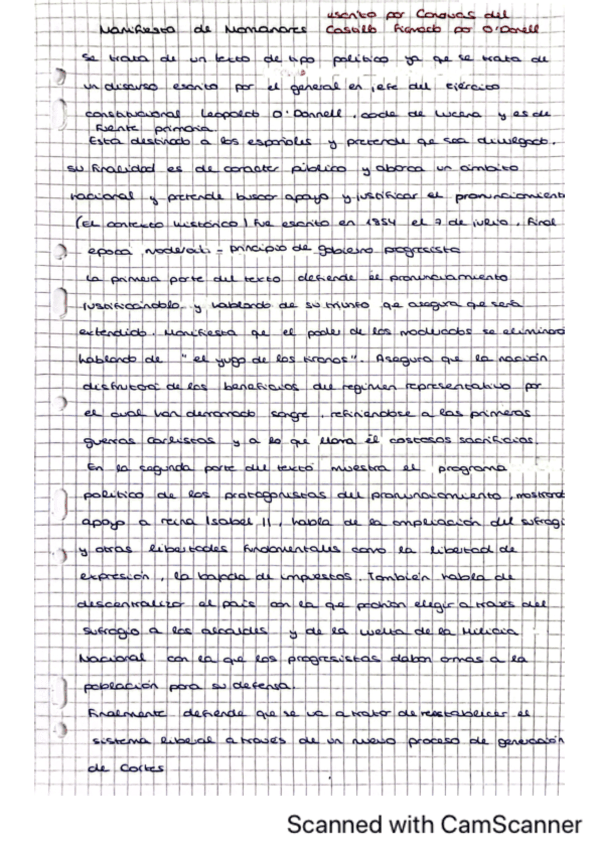 escrito por Canovas del
Manifiesto de Manzanares Castillo firmado por O'Donell
Se trata de un texto de tipo político ya que se trata de
un discurso escrito por el general en jefe del ejército
constitucional Leopoldo O'Donnell, conde de Lucena y es de
fuente primaria
Esta destinado a los españoles y pretende que sea divulgado.
su finalidad es de caracter público y abarca un ámbito
nacional y pretende buscar apoyo y justificar el pronunciamient
(El contexto histórico) fue escrito en 1854 el 7 de julio. Final
epoca moderati - principio de gobierno progresista
La primera parte del texto defiende el pronunciamiento
justificandolo y hablando de su triunfo que asegura que será
extendido. Manifiesta que el poder de los moderados se eliminará
hablando de "el yugo de los tiranos". Asegura que la nación
disfrutará de los beneficios del regimen representativo por
el cual han derramado sangre, refiriendose a las primeras
guerras carlistas y a lo que llama él costosos sacrificios.
En la segunda parte del texto muestra el programa
politico de los protagonistas del pronunciamiento, mostrand
apoyo a reina Isabel II, habla de la ampliación del sufragi
y otras libertades fundamentales como la libertad de
expresión, la bajada de impuestos. También habla de
descentralizar el país con la que podrían elegir a través del
sufragio a los alcaldes y de la vuelta de la Milicia
Nacional con la que los progresistas daban armas a la
población para su defensa.
Finalmente defiende que se va a tratar de reestablecer el
sistema liberal a través de un nuevo proceso de generación
de Cortes
Scanned with CamScanner